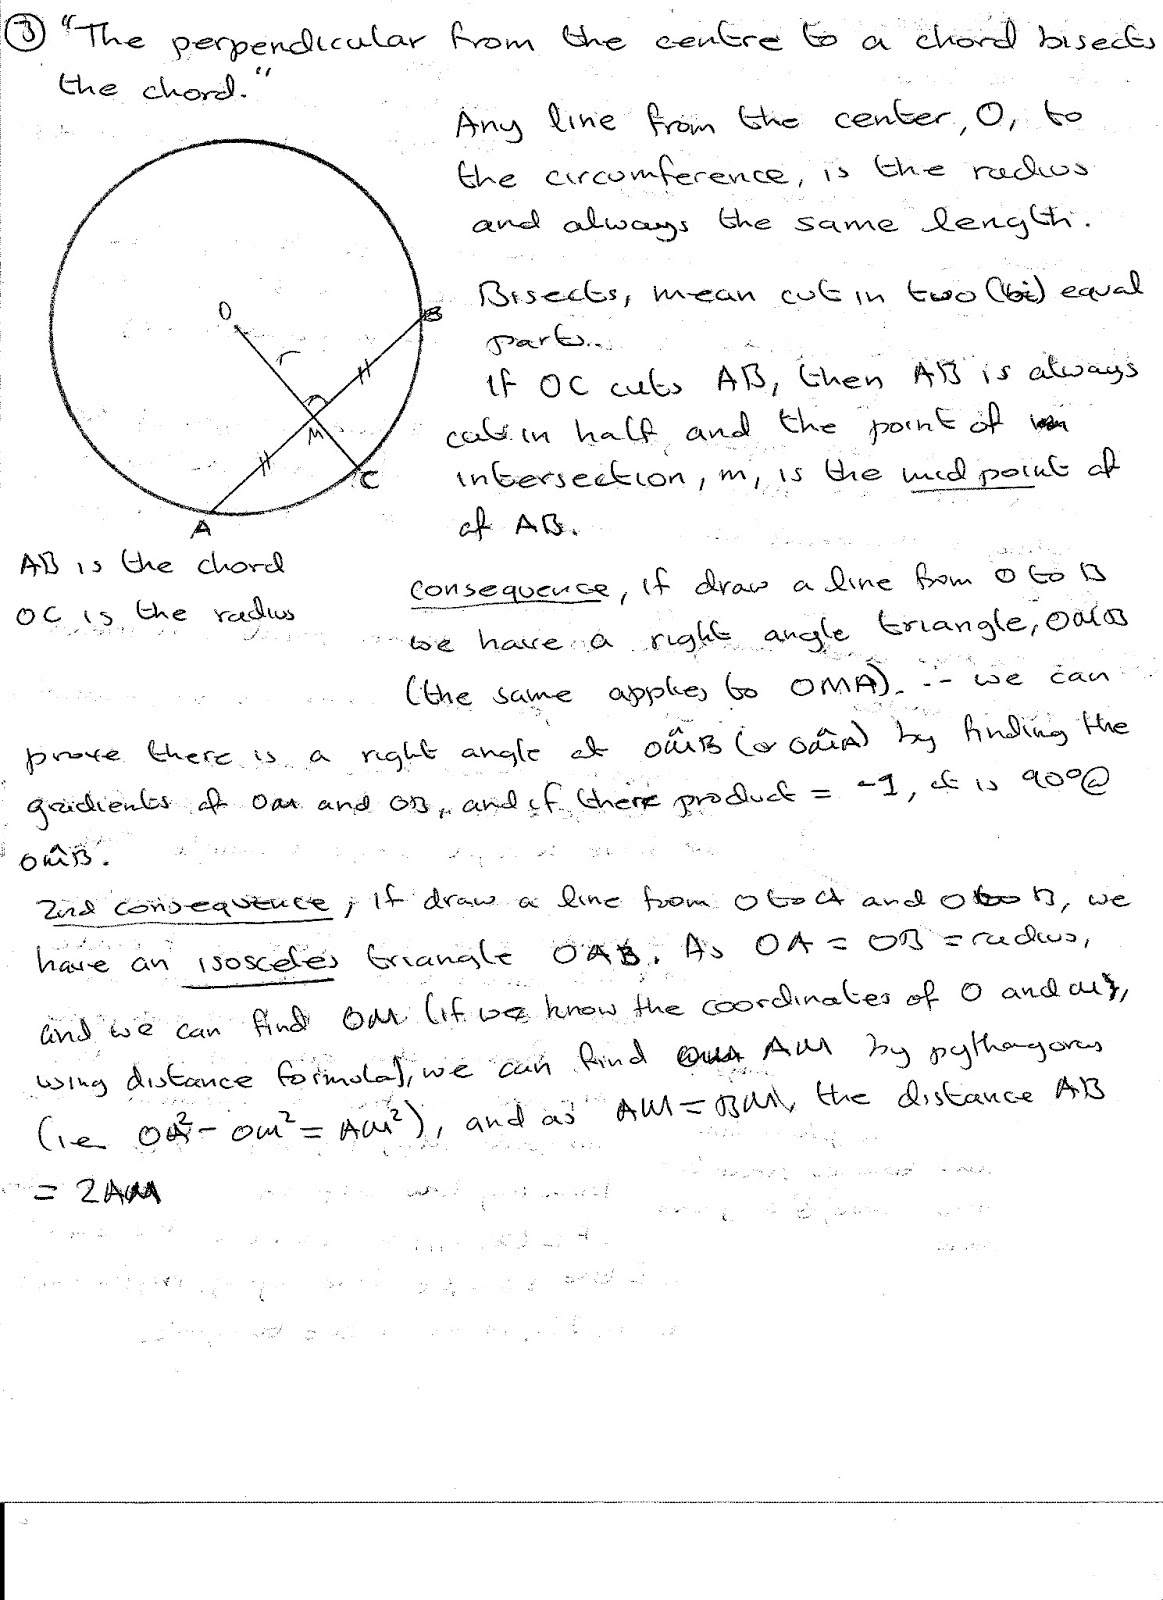 ③ "The perpendicular from the centre to a chord bisects
the chord."
Any line from the center, O, to
the circumference, is the radius
and always the same length.
Bisects, mean cut in two (bi) equal
parts..
If OC cuts AB, then AB is always
cut in half and the point of
intersection, m, is the mid point of
of AB.
O
r
B
M
C
A
AB is the chord
OC is the radius
Consequence, if draw a line from O to B
we have a right angle triangle, OMB
(the same applies to OMA). ∴ we can
prove there is a right angle at OM̂B (or OM̂A) by finding the
gradients of OM and OB, and if there product = -1, it is 90°@
OM̂B.
2nd consequence, if draw a line from O to A and O to B, we
have an isosceles triangle OAB. As OA = OB = radius,
and we can find OM (if we know the coordinates of O and M},
using distance formula), we can find AM by pythagoras
(ie OA² - OM² = AM²), and as AM = BM, the distance AB
= 2AM